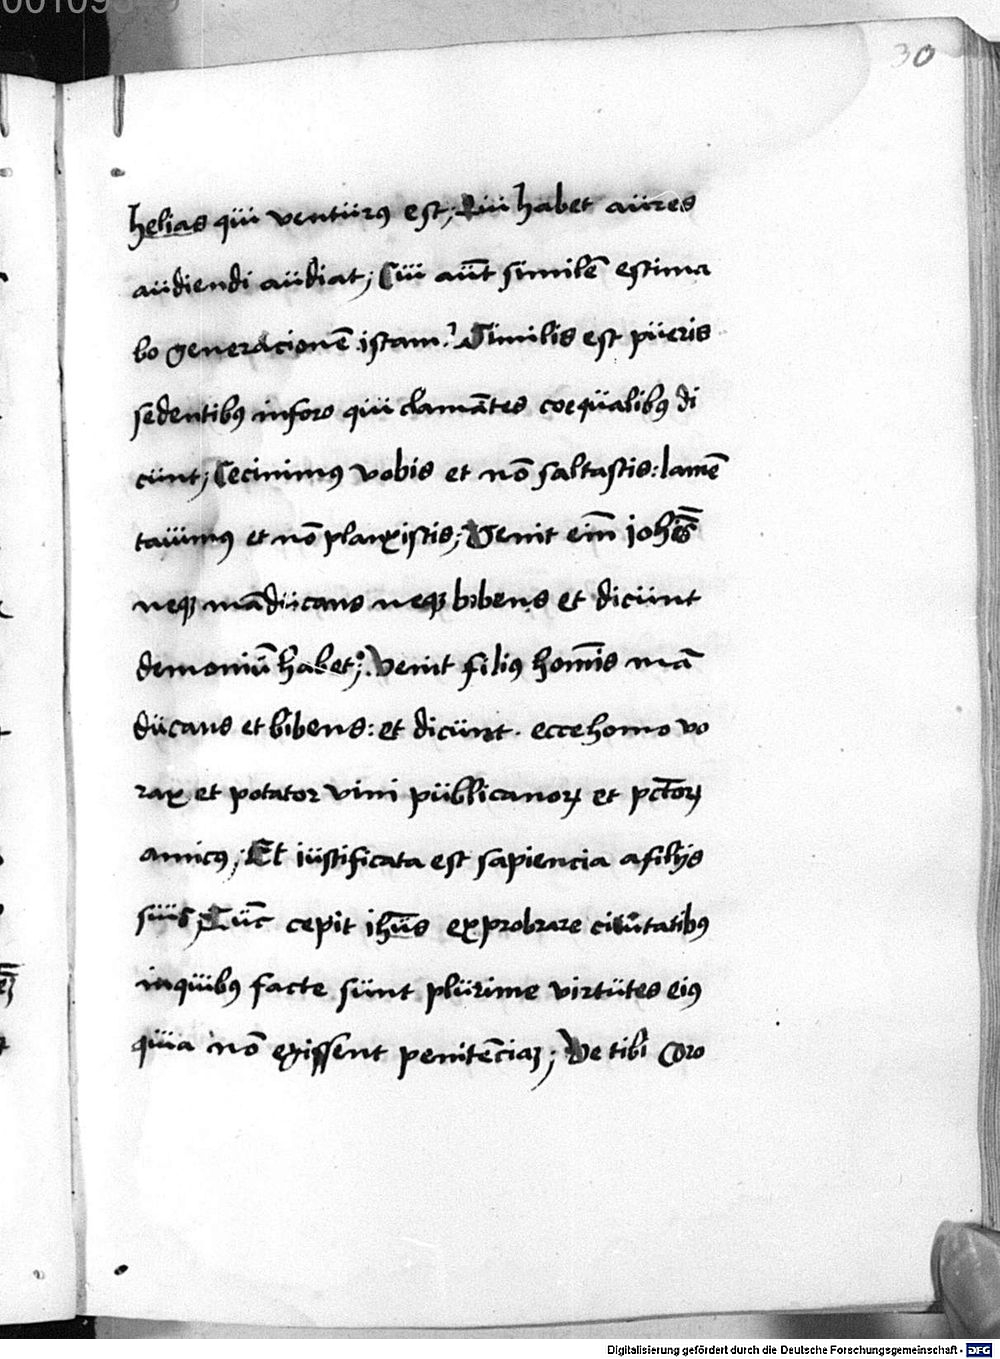 30
helias qui venturꝰ est; Qui habet aures
audiendi audiat; Cui aut̄ similē estima
bo generacionē istam? Similis est pueris
sedentibꝰ inforo qui clamātes coequalibꝰ di
cunt; Cecinimꝰ vobis et nō saltastis: lamē
tauimꝰ et nō planxistis; Venit eim̄ ioh̄es̄
neqꝫ māducans neqꝫ bibens et dicunt
demoniū habet; Venit filiꝰ homīs mā
ducans et bibens: et dicunt. ecce homo vo
rax et potator vini publicanoꝝ et pct̄oꝝ
amicꝰ; Et iustificata est sapiencia afilijs
suis; Tūc cepit ih̄us exprobrare ciuitatibꝰ
inquibꝰ facte sunt plurime virtutes eiꝰ
quia nō egissent penitēciaꝫ; Ve tibi Coro
Digitalisierung gefördert durch die Deutsche Forschungsgemeinschaft - DFG